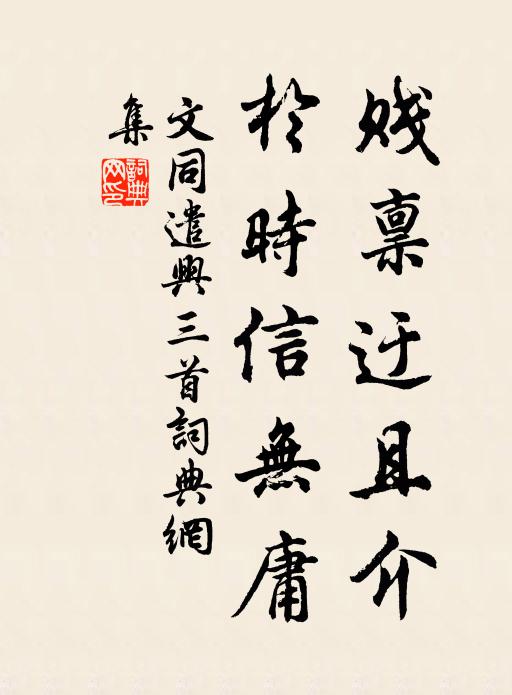 賤稟迂且介
於時信無庸
文同遣興三首詞典網
集
詞典網印